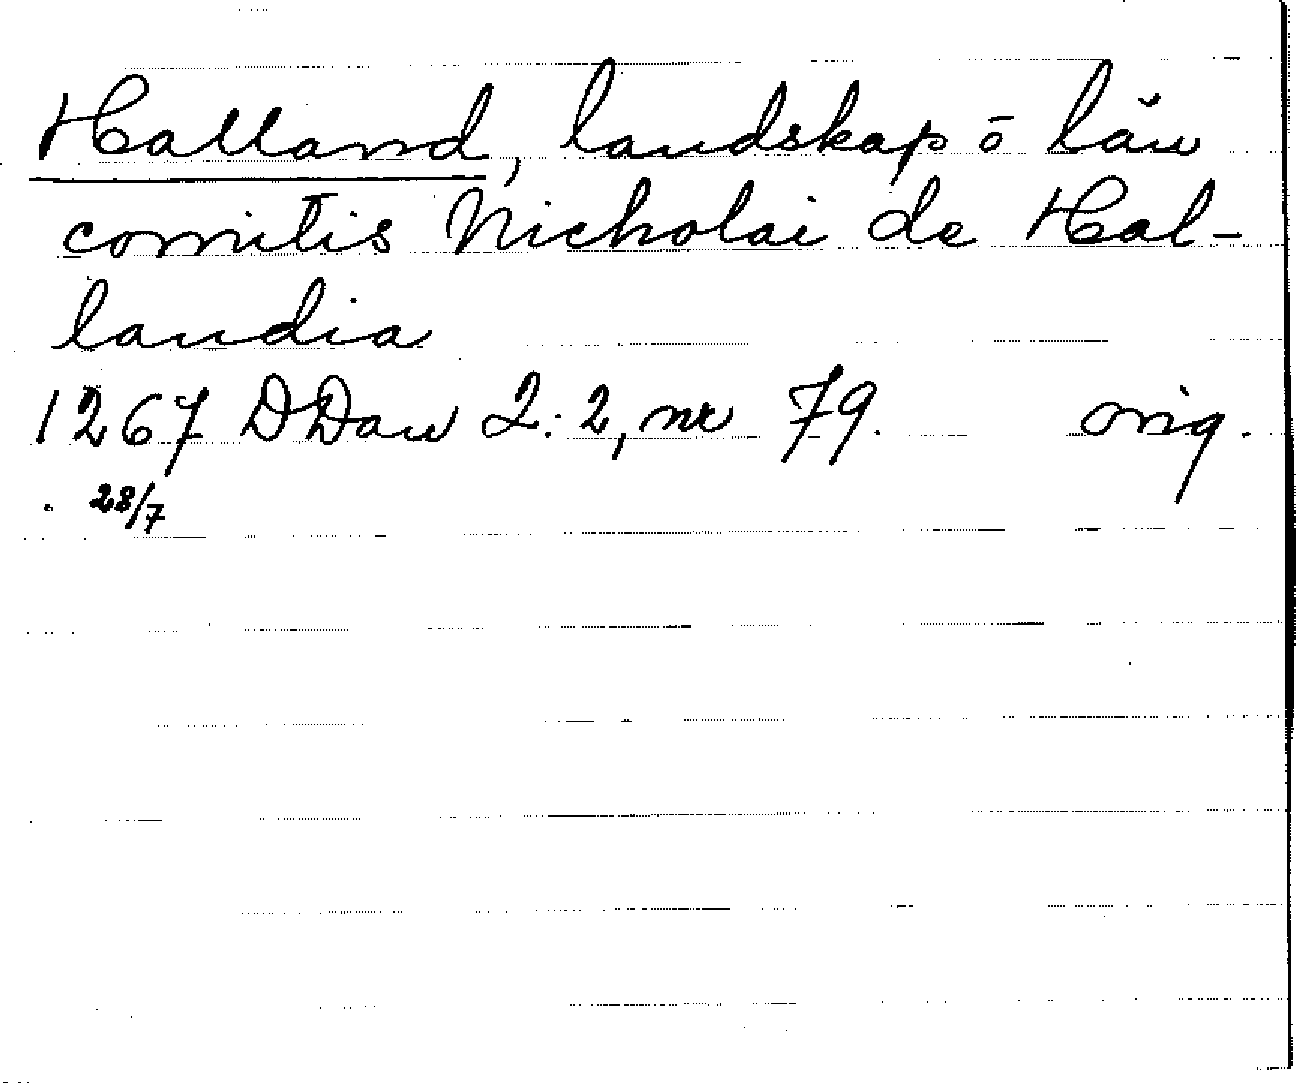 Halland, landskap ō län
comitis Nicholai de Hal-
landia
1267 DDan 2:2, nr 79. orig.
28/7